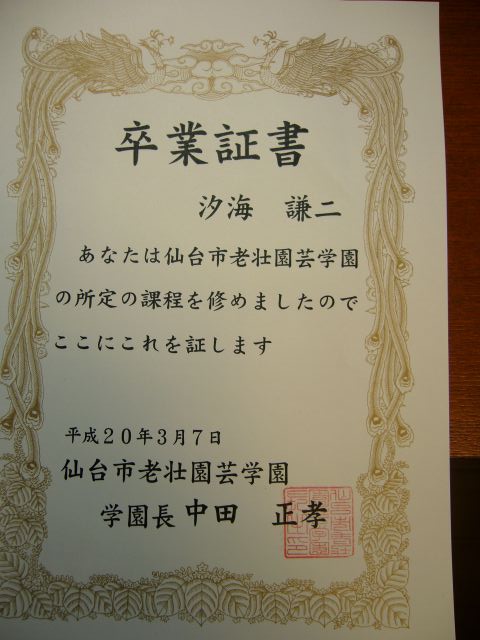 卒業証書
汐海 謙二
あなたは仙台市老壮園芸学園
の所定の課程を修めましたので
ここにこれを証します
平成20年3月7日
仙台市老壮園芸学園
学園長 中田 正孝